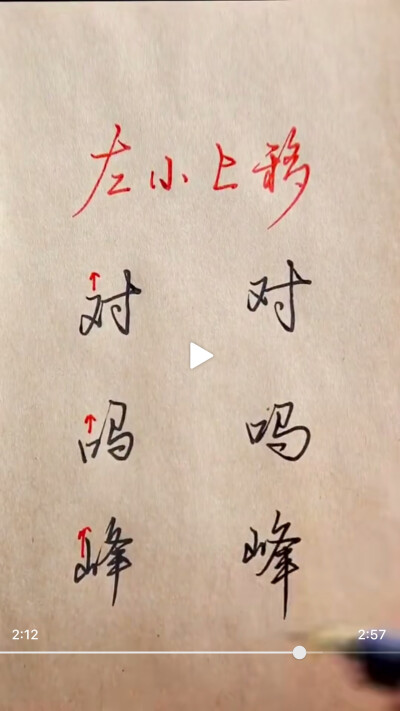 左小上移
对 对
吗 吗
峰 峰
2:12 2:57